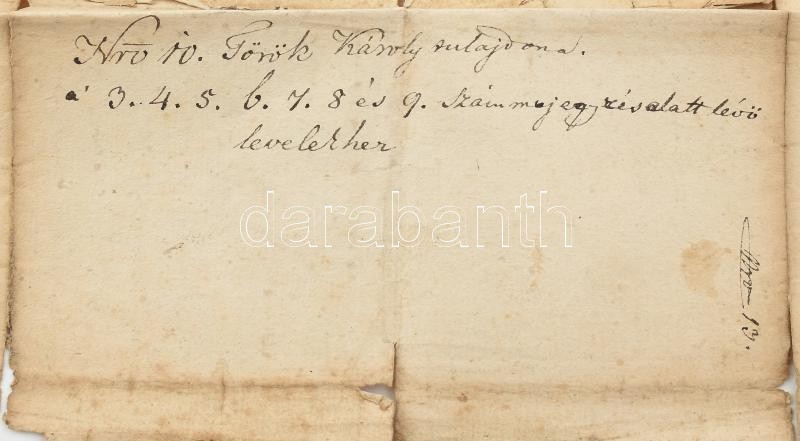 Nro 10. Török Károly tulajdona.
a' 3. 4. 5. 6. 7. 8 és 9. szám mejegyzés alatt lévő
levelekhez
darabanth
Nro 13.